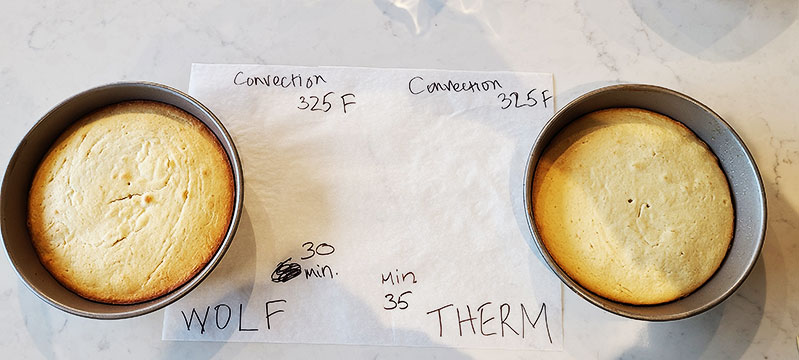 Convection
325 F
30
min.
WOLF
Convection
325 F
Min
35
THERM